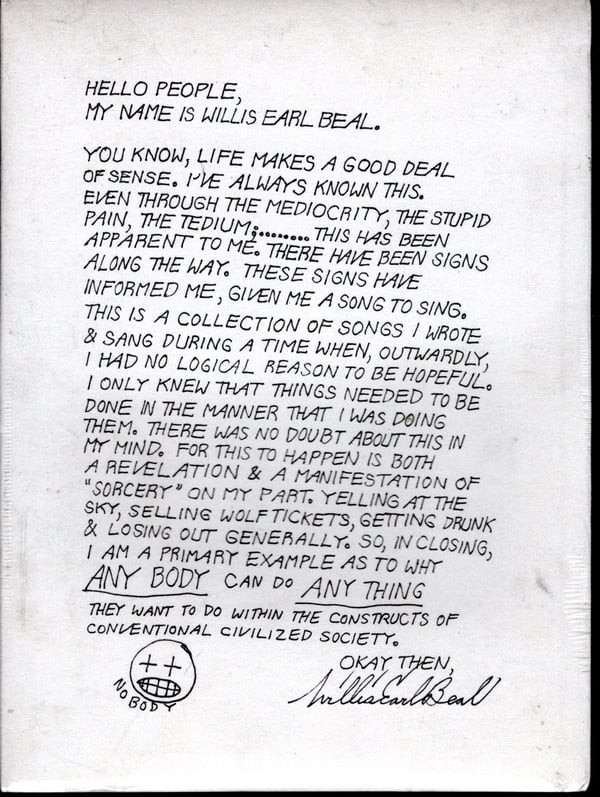 HELLO PEOPLE,
MY NAME IS WILLIS EARL BEAL.
YOU KNOW, LIFE MAKES A GOOD DEAL
OF SENSE. I'VE ALWAYS KNOWN THIS.
EVEN THROUGH THE MEDIOCRITY, THE STUPID
PAIN, THE TEDIUM;......... THIS HAS BEEN
APPARENT TO ME. THERE HAVE BEEN SIGNS
ALONG THE WAY. THESE SIGNS HAVE
INFORMED ME, GIVEN ME A SONG TO SING.
THIS IS A COLLECTION OF SONGS I WROTE
& SANG DURING A TIME WHEN, OUTWARDLY,
I HAD NO LOGICAL REASON TO BE HOPEFUL.
I ONLY KNEW THAT THINGS NEEDED TO BE
DONE IN THE MANNER THAT I WAS DOING
THEM. THERE WAS NO DOUBT ABOUT THIS IN
MY MIND. FOR THIS TO HAPPEN IS BOTH
A REVELATION & A MANIFESTATION OF
"SORCERY" ON MY PART. YELLING AT THE
SKY, SELLING WOLF TICKETS, GETTING DRUNK
& LOSING OUT GENERALLY. SO, IN CLOSING,
I AM A PRIMARY EXAMPLE AS TO WHY
ANY BODY CAN DO ANY THING
THEY WANT TO DO WITHIN THE CONSTRUCTS OF
CONVENTIONAL CIVILIZED SOCIETY.
OKAY THEN,
Willis Earl Beal
NOBODY